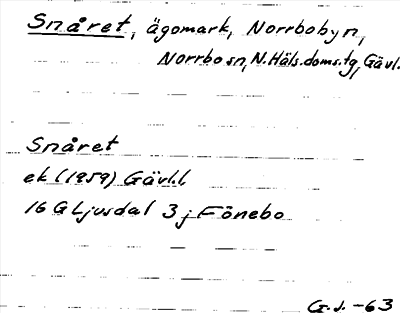 Snåret, ägomark, Norrbobyn,
Norrbo sn, N. Häls. doms.tg, Gävl.
Snåret
ek (1959) Gävl.l.
16 G Ljusdal 3 j Fönebo
G.J. -63